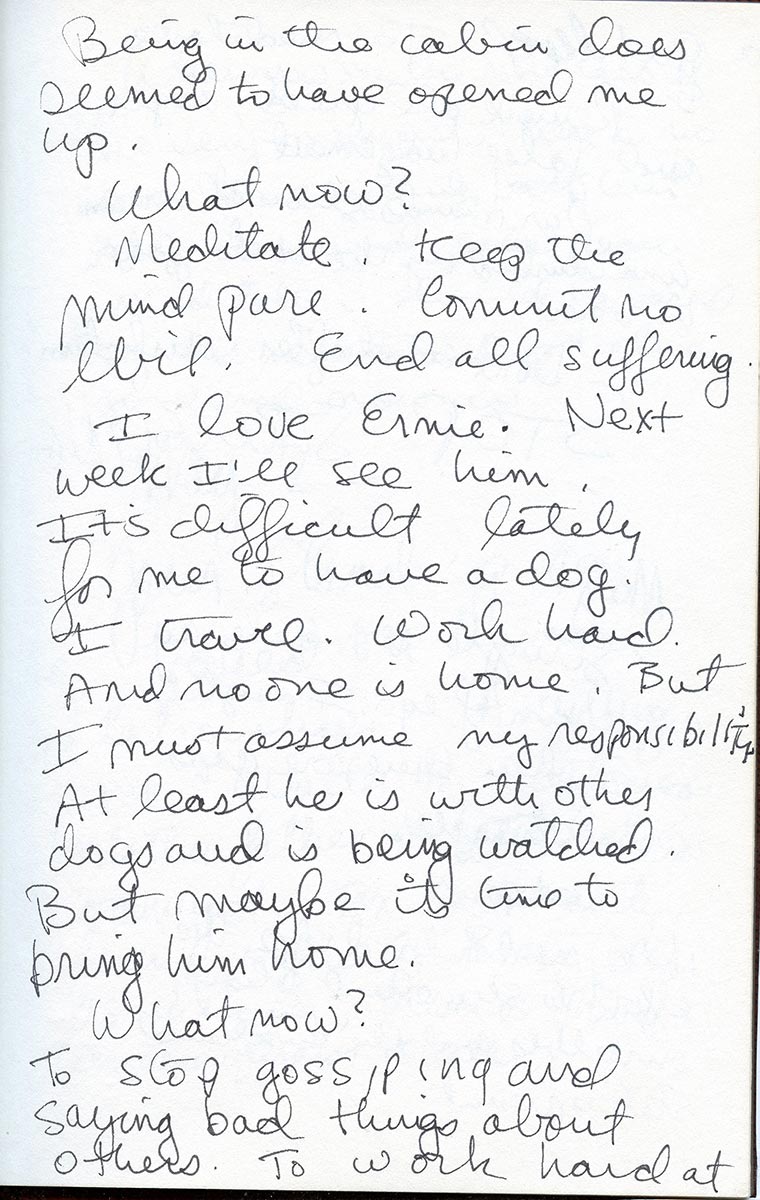 Being in the cabin does
seemed to have opened me
up.
What now?
Meditate. Keep the
mind pure. Commit no
evil. End all suffering.
I love Ernie. Next
week I'll see him.
It's difficult lately
for me to have a dog.
I travel. Work hard.
And no one is home. But
I must assume my responsibility.
At least he is with other
dogs and is being watched.
But maybe its time to
bring him home.
What now?
To stop gossiping and
saying bad things about
others. To work hard at